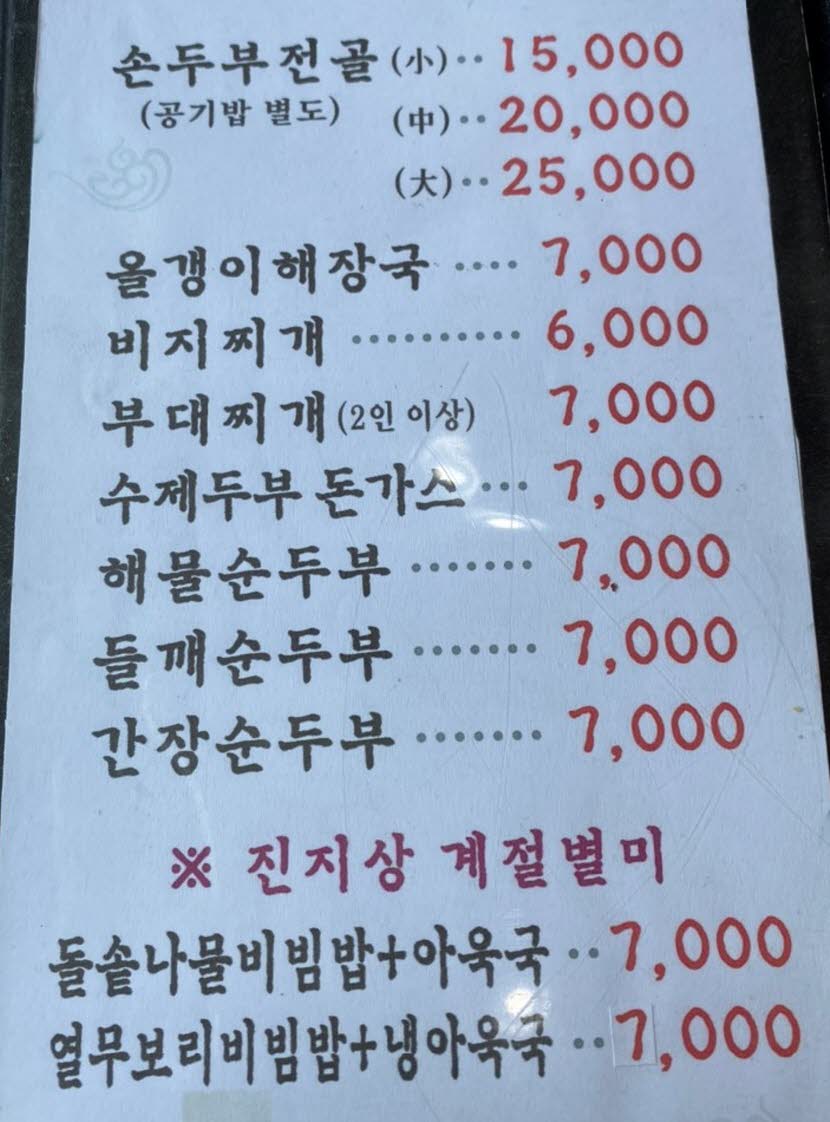 손두부전골 (小)·· 15,000
(공기밥 별도) (中)·· 20,000
(大)·· 25,000
올갱이해장국 ···· 7,000
비지찌개 ·········· 6,000
부대찌개(2인 이상) 7,000
수제두부 돈가스 ··· 7,000
해물순두부 ······· 7,000
들깨순두부 ······· 7,000
간장순두부 ······· 7,000
※ 진지상 계절별미
돌솥나물비빔밥+아욱국 ·· 7,000
열무보리비빔밥+냉아욱국 ·· 7,000